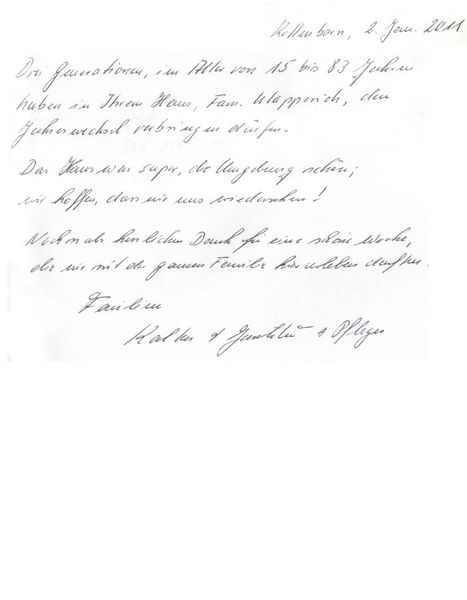 Kottenborn, 2. Jan. 2011
Drei Generationen, im Alter von 15 bis 83 Jahren
haben in Ihrem Haus, Fam. Klapperich, den
Jahreswechsel verbringen dürfen.
Das Haus war super, die Umgebung schön;
wir hoffen, dass wir uns wiedersehen!
Nochmals herzlichen Dank für eine schöne Woche,
die wir mit der ganzen Familie hier erleben durften.
Familien
& & Pfleger